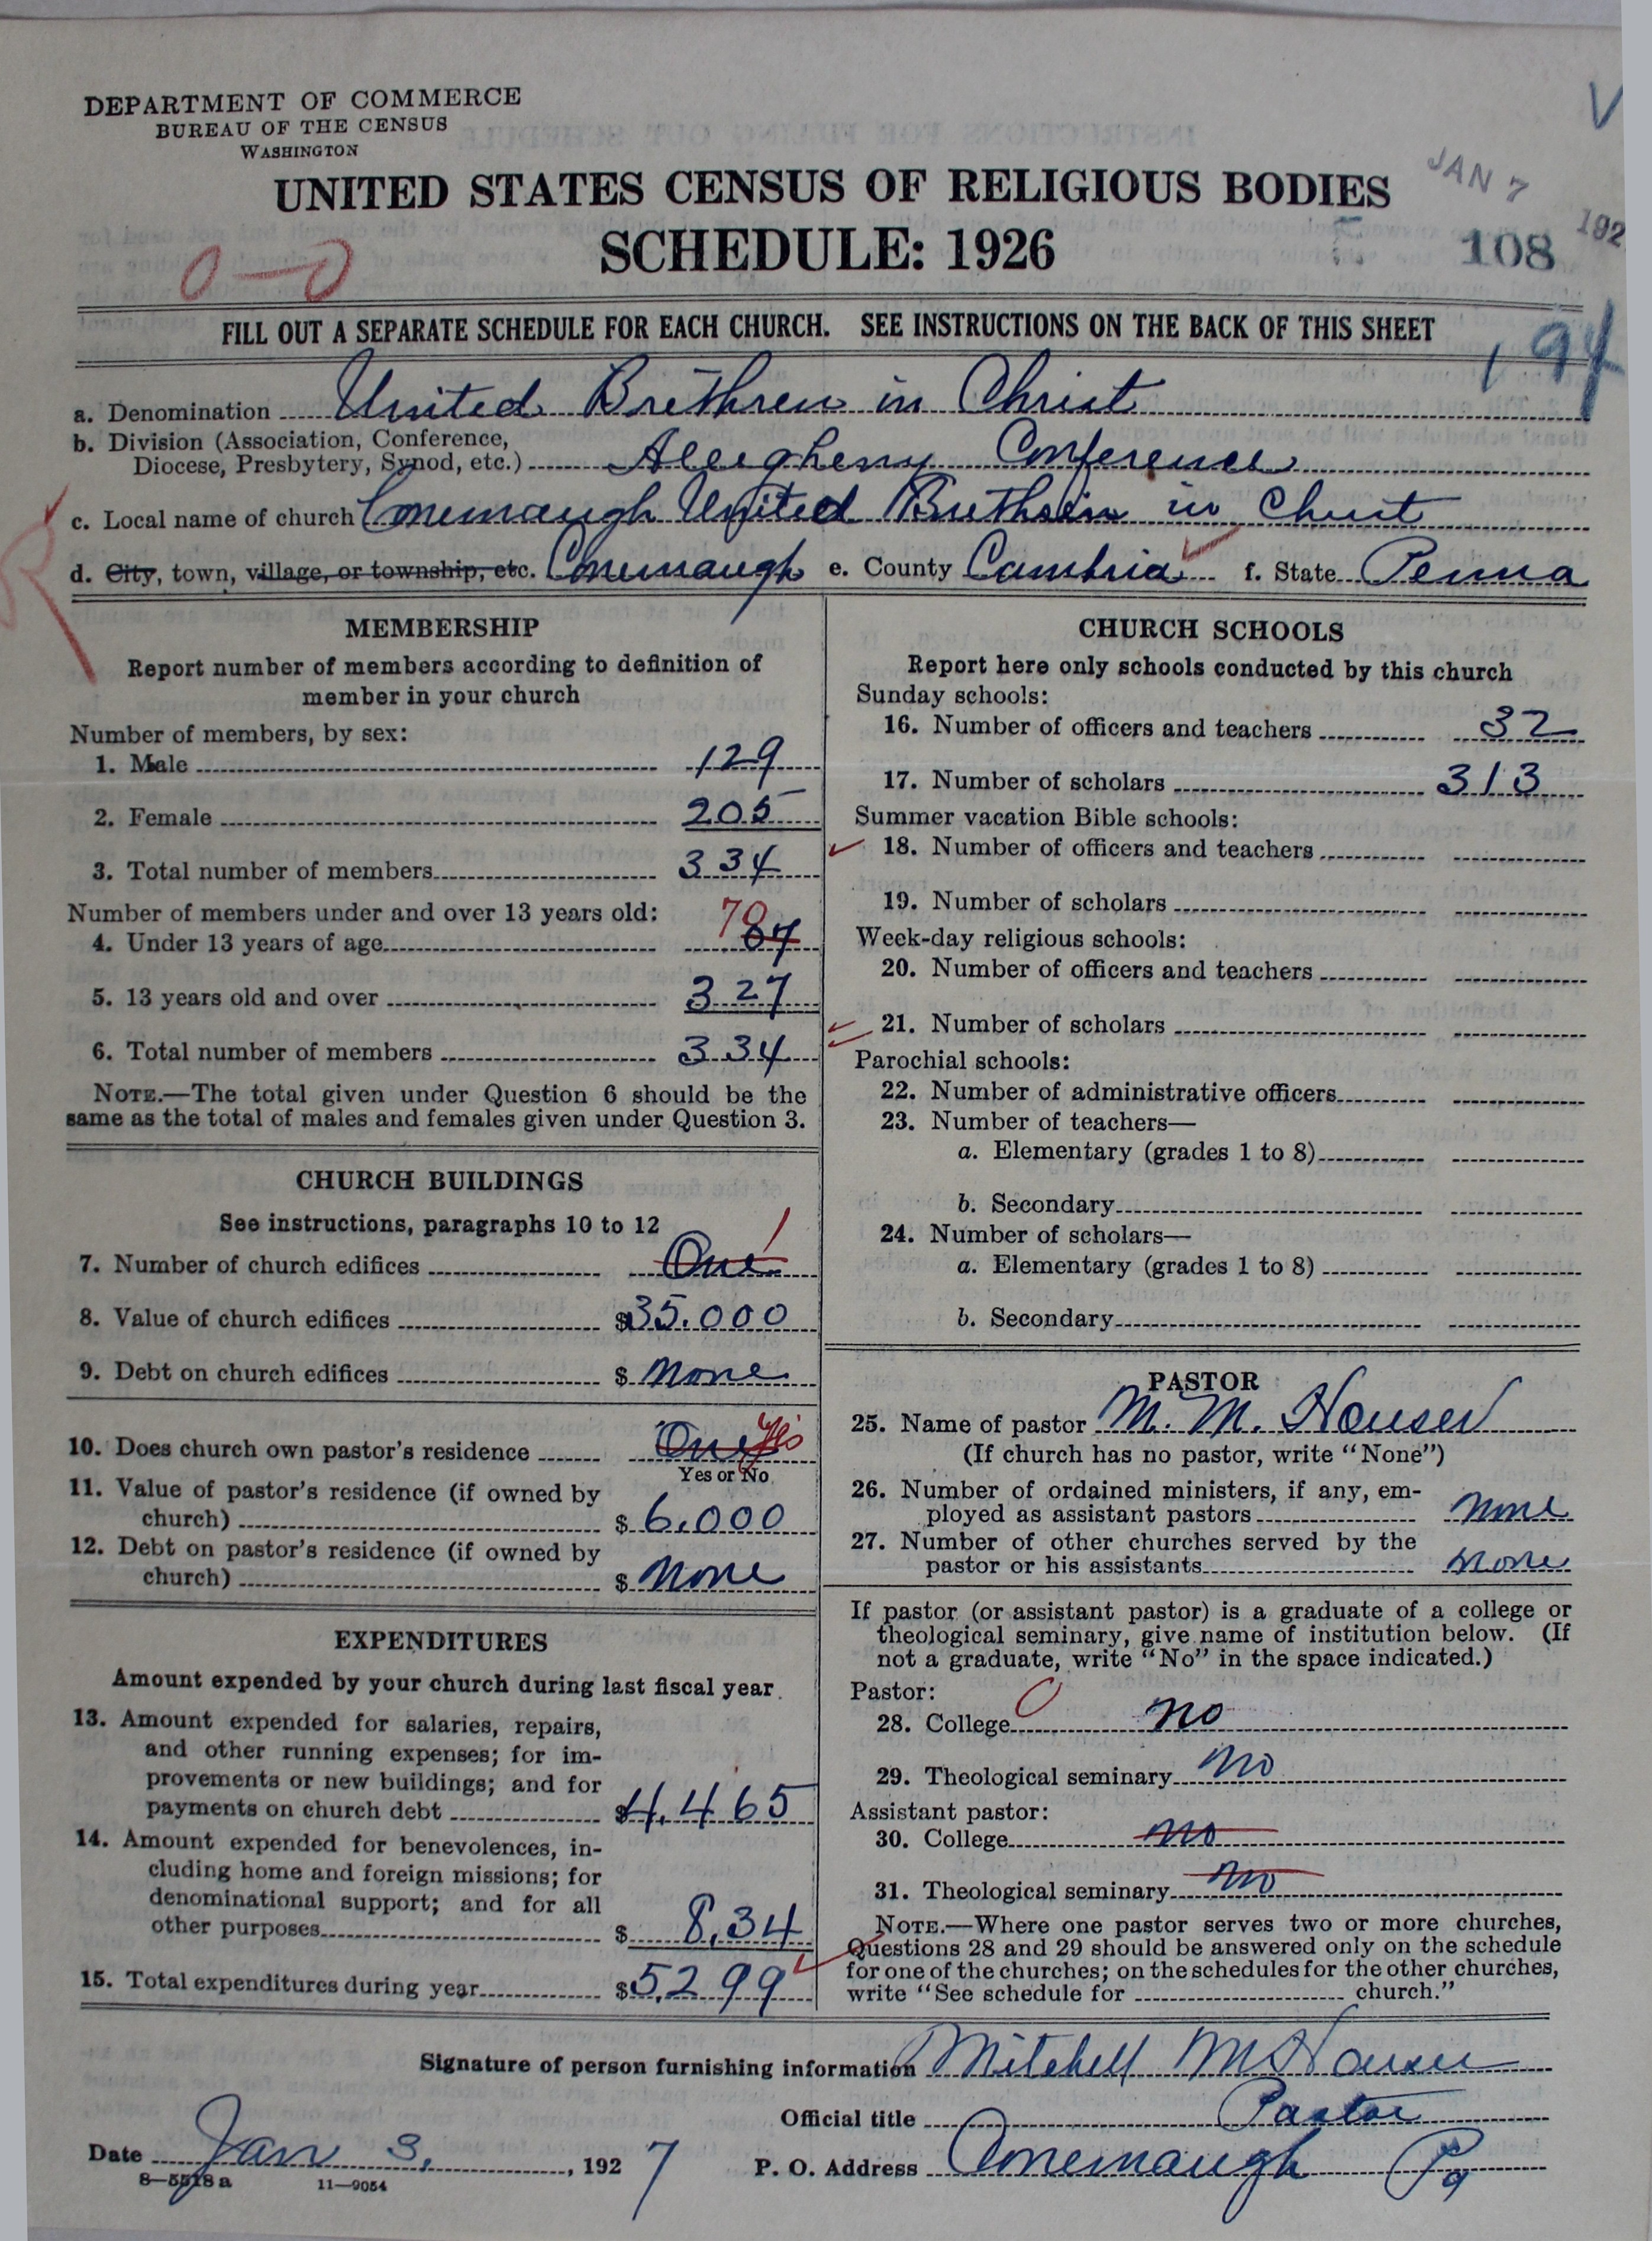 DEPARTMENT OF COMMERCE
BUREAU OF THE CENSUS
WASHINGTON
UNITED STATES CENSUS OF RELIGIOUS BODIES
JAN 7 192
SCHEDULE: 1926
108
0—0
FILL OUT A SEPARATE SCHEDULE FOR EACH CHURCH. SEE INSTRUCTIONS ON THE BACK OF THIS SHEET
194
a. Denomination United Brethren in Christ
b. Division (Association, Conference,
Diocese, Presbytery, Synod, etc.) Allegheny Conference
c. Local name of church Conemaugh United Brethren in Christ
d. City, town, village, or township, etc. Conemaugh e. County Cambria f. State Penna
R
MEMBERSHIP
Report number of members according to definition of
member in your church
Number of members, by sex:
1. Male 129
2. Female 205
3. Total number of members 334
Number of members under and over 13 years old:
4. Under 13 years of age 7
5. 13 years old and over 327
6. Total number of members 334
NOTE.—The total given under Question 6 should be the
same as the total of males and females given under Question 3.
CHURCH BUILDINGS
See instructions, paragraphs 10 to 12
7. Number of church edifices One 1
8. Value of church edifices $35.000
9. Debt on church edifices $ none
10. Does church own pastor's residence One Yes
Yes or No
11. Value of pastor's residence (if owned by
church) $ 6.000
12. Debt on pastor's residence (if owned by
church) $ none
EXPENDITURES
Amount expended by your church during last fiscal year
13. Amount expended for salaries, repairs,
and other running expenses; for im-
provements or new buildings; and for
payments on church debt $4,465
14. Amount expended for benevolences, in-
cluding home and foreign missions; for
denominational support; and for all
other purposes $ 8,34
15. Total expenditures during year $5,299
CHURCH SCHOOLS
Report here only schools conducted by this church
Sunday schools:
16. Number of officers and teachers 32
17. Number of scholars 313
Summer vacation Bible schools:
18. Number of officers and teachers
19. Number of scholars
Week-day religious schools:
20. Number of officers and teachers
21. Number of scholars
Parochial schools:
22. Number of administrative officers
23. Number of teachers—
a. Elementary (grades 1 to 8)
b. Secondary
24. Number of scholars—
a. Elementary (grades 1 to 8)
b. Secondary
PASTOR
25. Name of pastor M. M. Houser
(If church has no pastor, write "None")
26. Number of ordained ministers, if any, em-
ployed as assistant pastors none
27. Number of other churches served by the
pastor or his assistants none
If pastor (or assistant pastor) is a graduate of a college or
theological seminary, give name of institution below. (If
not a graduate, write "No" in the space indicated.)
Pastor:
28. College 0 no
29. Theological seminary no
Assistant pastor:
30. College no
31. Theological seminary no
NOTE.—Where one pastor serves two or more churches,
Questions 28 and 29 should be answered only on the schedule
for one of the churches; on the schedules for the other churches,
write "See schedule for church."
Signature of person furnishing information Mitchell M Houser
Official title Pastor
Date Jan 3, 1927 P. O. Address Conemaugh Pa
8—5518 a 11—9054